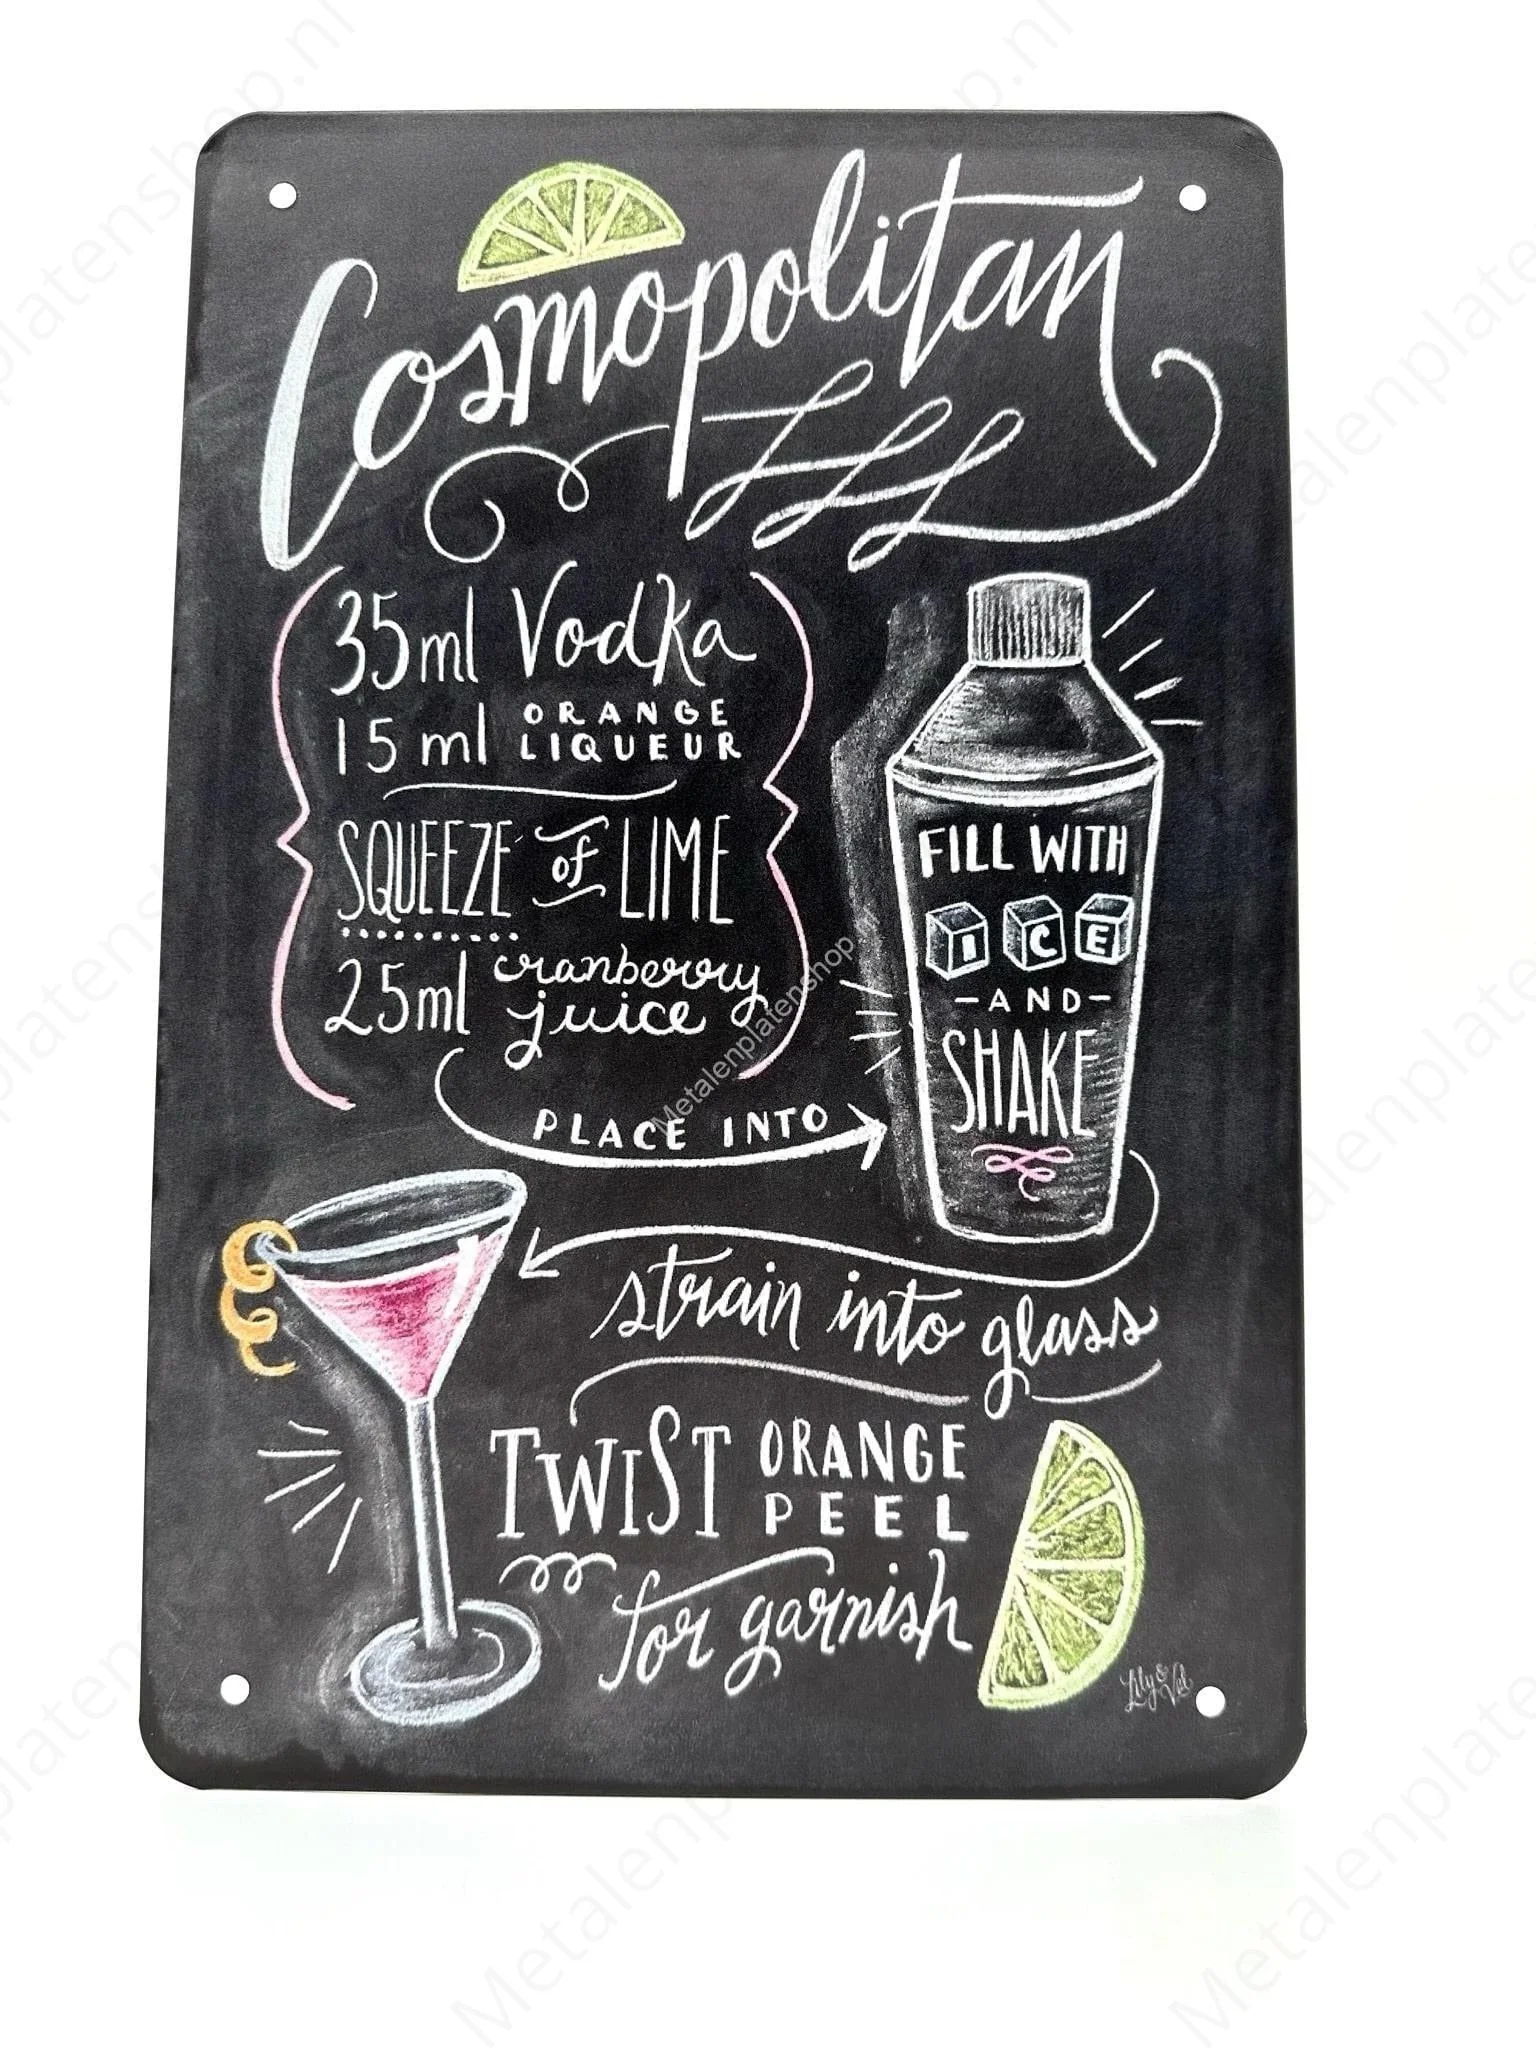 Cosmopolitan
35ml Vodka
15 ml ORANGE
LIQUEUR
SQUEEZE of LIME
25ml cranberry
juice
PLACE INTO
FILL WITH
ICE
-AND-
SHAKE
strain into glass
TWIST ORANGE
PEEL
for garnish
Lily & Val
Metalenplatenshop.nl